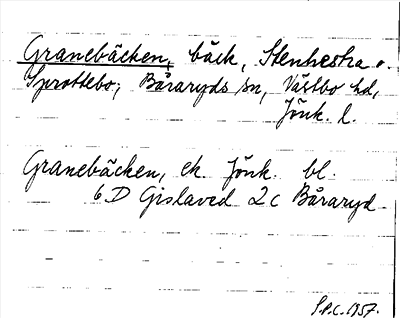 Granebäcken, bäck, Stenhestra o.
Sprottebo, Båraryds sn, Västbo hd,
Jönk. l.
Granebäcken, ek. Jönk. bl.
6 D Gislaved 2 c Båraryd
S.P.C. 1957.